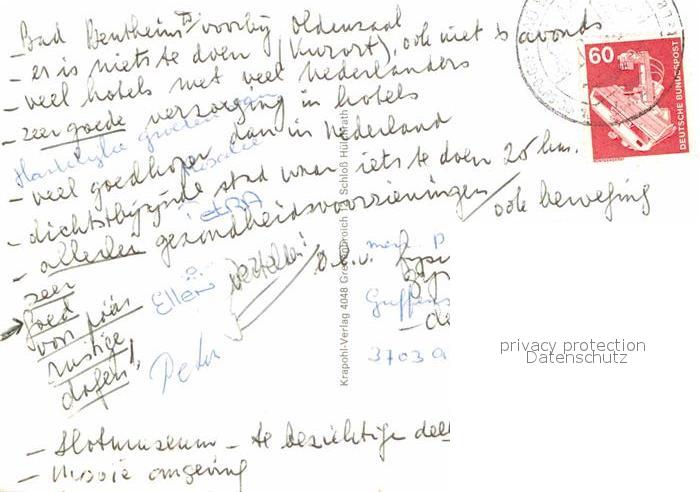 - Bad Bentheim voorbij Oldenzaal
- er is niets te doen (Kurort), ook niet 's avonds
- veel hotels met veel Nederlanders
- zeer goede verzorging in hotels
Hartelijke groeten van
- veel goedkoper dan in Nederland
Rosalie
- dichtstbijzijnde stad waar iets te doen 20 km.
PetRA
- allerlei gezondheidsvoorzieningen / ook beweging
zeer
goed
voor paar
rustige
dagen!
Ellen
Peter
vertellen!
o.l.v.
Griffens
3703 a
- de
- Slotmuseum - te bezichtigen deel
- Mooie omgeving
Krapohl-Verlag 4048 Grevenbroich 12 Schloß Hülchrath
60
DEUTSCHE BUNDESPOST
privacy protection
Datenschutz